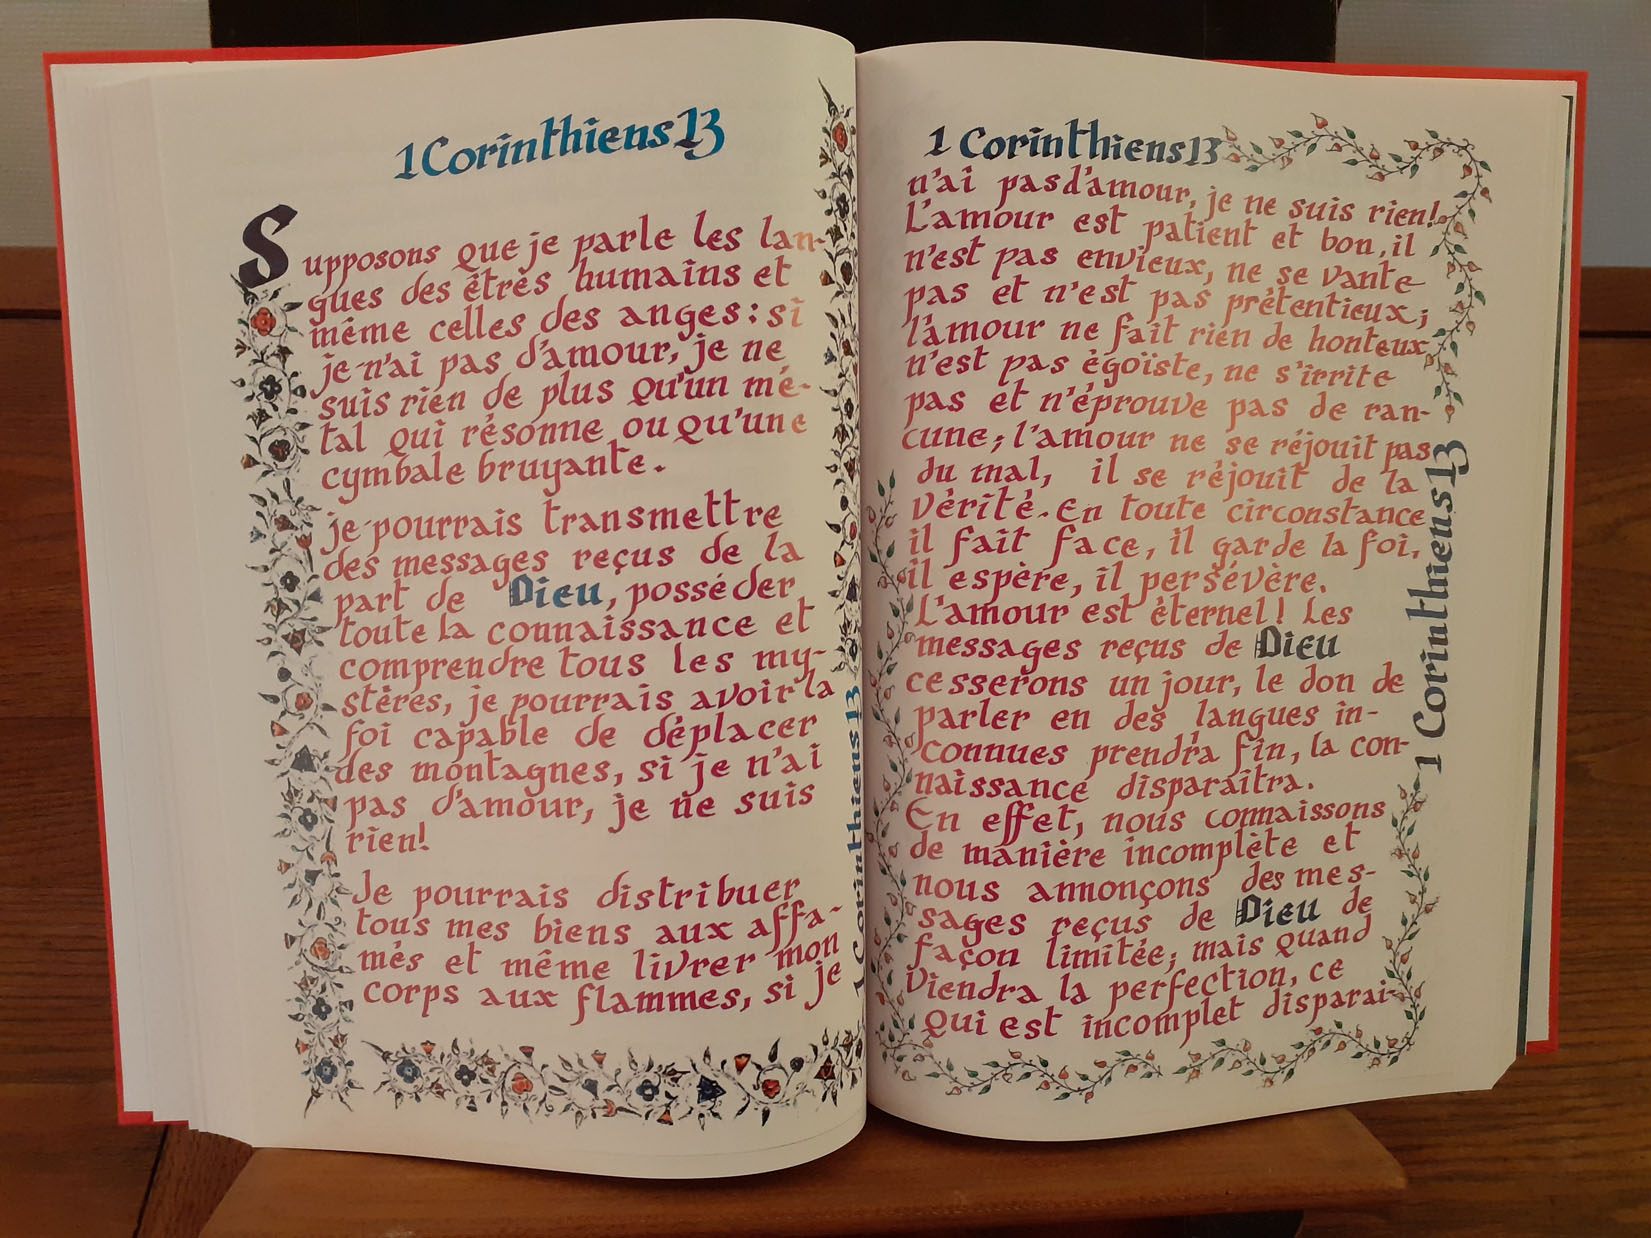 1 Corinthiens 13
Supposons que je parle les lan-
gues des êtres humains et
même celles des anges : si
je n'ai pas d'amour, je ne
suis rien de plus qu'un mé-
tal qui résonne ou qu'une
cymbale bruyante.
je pourrais transmettre
des messages reçus de la
part de Dieu, posséder
toute la connaissance et
comprendre tous les my-
stères, je pourrais avoir la
foi capable de déplacer
des montagnes, si je n'ai
pas d'amour, je ne suis
rien!
Je pourrais distribuer
tous mes biens aux affa-
més et même livrer mon
corps aux flammes, si je
1 Corinthiens 13
1 Corinthiens 13
n'ai pas d'amour, je ne suis rien!
L'amour est patient et bon, il
n'est pas envieux, ne se vante
pas et n'est pas prétentieux;
l'amour ne fait rien de honteux,
n'est pas égoïste, ne s'irrite
pas et n'éprouve pas de ran-
cune; l'amour ne se réjouit pas
du mal, il se réjouit de la
vérité. En toute circonstance
il fait face, il garde la foi,
il espère, il persévère.
L'amour est éternel! Les
messages reçus de Dieu
cesserons un jour, le don de
parler en des langues in-
connues prendra fin, la con-
naissance disparaîtra.
En effet, nous connaissons
de manière incomplète et
nous annonçons des mes-
sages reçus de Dieu de
façon limitée; mais quand
viendra la perfection, ce
qui est incomplet disparai-
1 Corinthiens 13